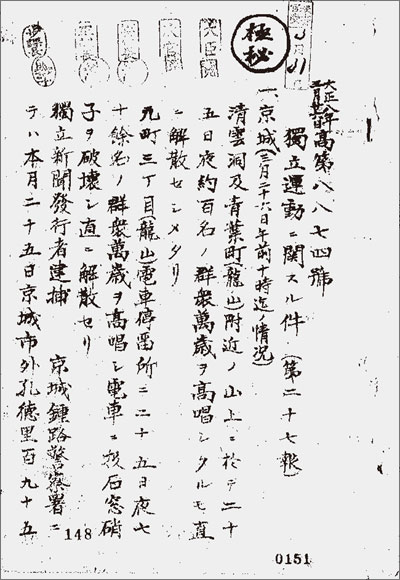 極秘
大正八年
三月廿六日
高第八八七四號
獨立運動ニ關スル件 (第二十七報)
一、京城(三月二十六日午前十時迄ノ情況)
清雲洞及青葉町(龍山)附近ノ山上ニ於テ二十
五日夜約百名ノ群衆萬歳ヲ高唱シタルモ直
ニ解散セシメタリ
元町三丁目(龍山)電車停留所ニ二十五日夜七
十餘名ノ群衆萬歳ヲ高唱シ電車ニ投石窓硝
子ヲ破壊シ直ニ解散セリ
獨立新聞發行者逮捕 京城鍾路警察署ニ
テハ本月二十五日京城市外孔德里百九十五
148
0151